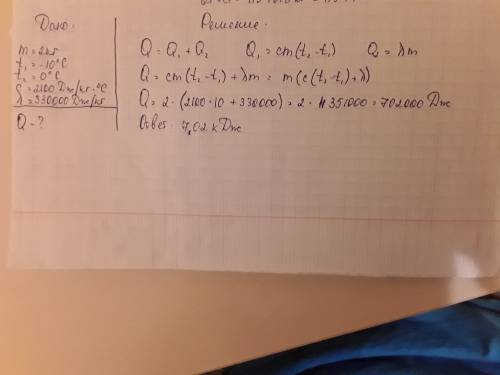 Дано:
m = 2 кг
t₁ = -10°C
t₂ = 0°C
c = 2100 Дж/кг·°C
λ = 330000 Дж/кг
Q - ?
Решение:
Q = Q₁ + Q₂ Q₁ = cm(t₂-t₁) Q₂ = λm
Q = cm(t₂-t₁) + λm = m(c(t₂-t₁)+λ)
Q = 2·(2100·10 + 330000) = 2·351000 = 702000 Дж
Ответ: 7,02 кДж